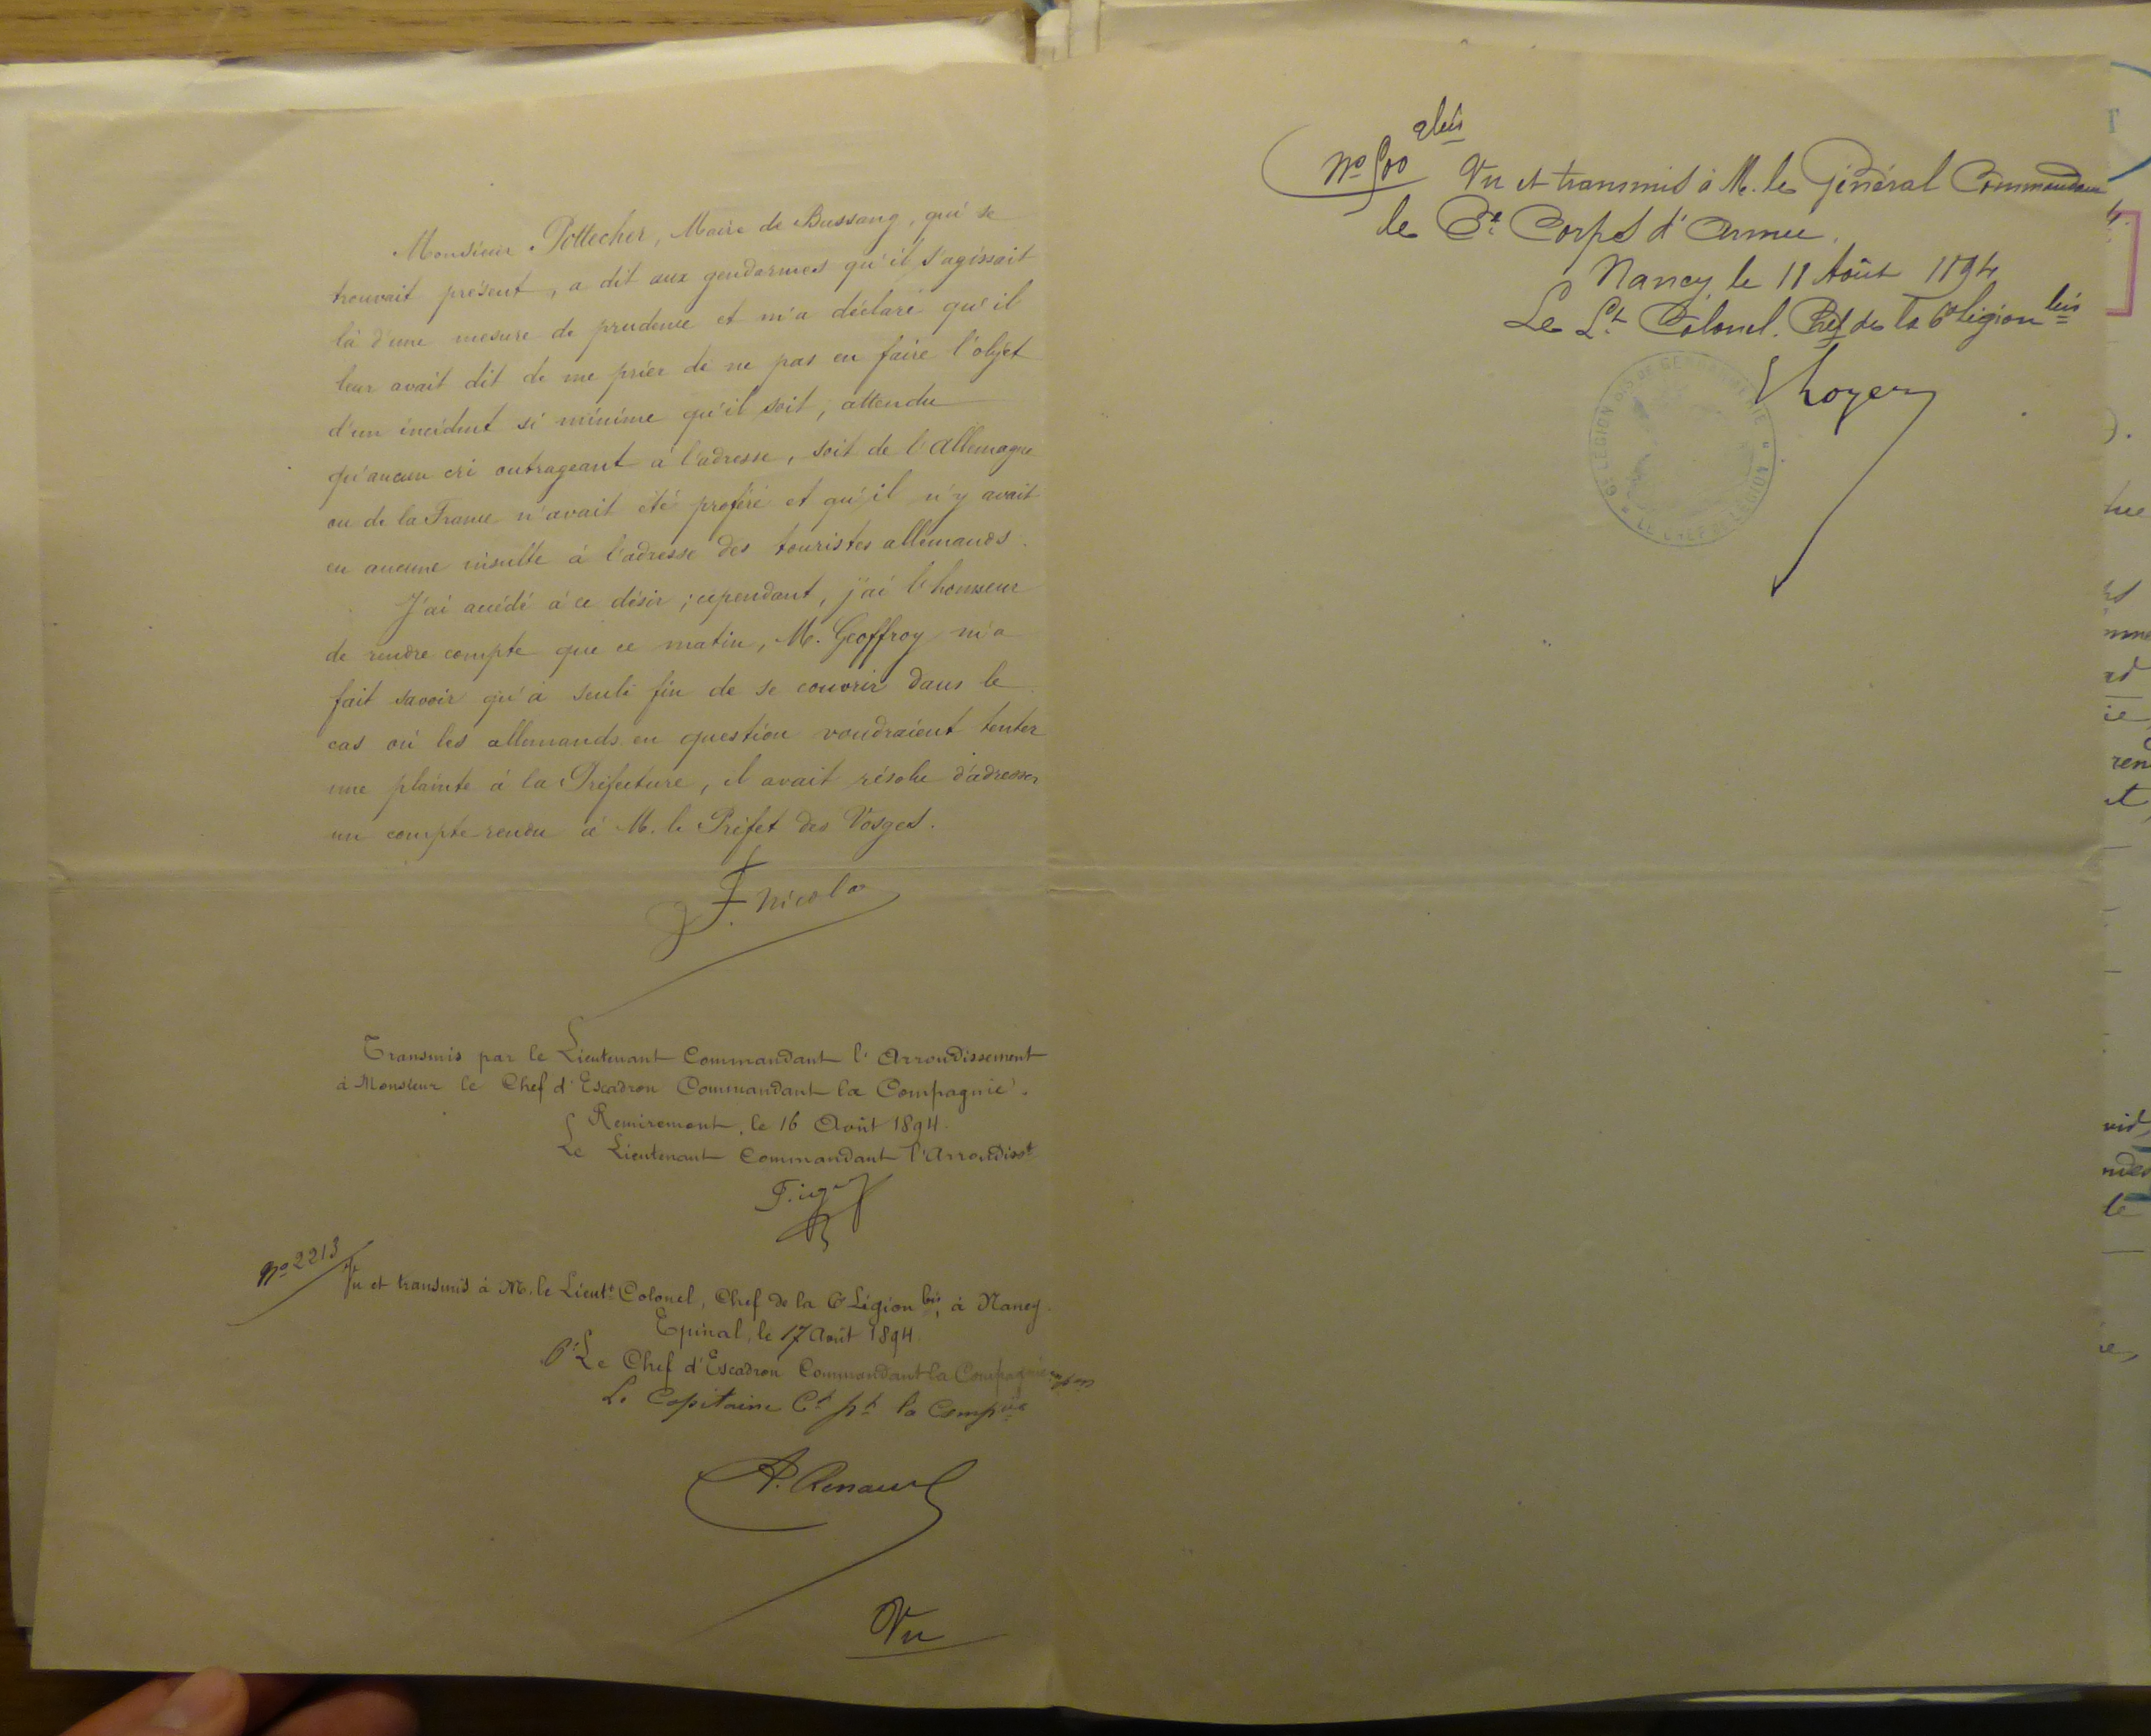 Monsieur Pottecher, Maire de Bussang, qui se
trouvait présent, a dit aux gendarmes qu'il s'agissait
là d'une mesure de prudence et m'a déclaré qu'il
leur avait dit de me prier de ne pas en faire l'objet
d'un incident si minime qu'il soit, attendu
qu'aucun cri outrageant à l'adresse, soit de l'Allemagne
ou de la France n'avait été proféré et qu'il n'y avait
eu aucune insulte à l'adresse des touristes allemands.
J'ai accédé à ce désir; cependant, j'ai l'honneur
de rendre compte que ce matin, M. Geoffroy m'a
fait savoir qu'à seule fin de se couvrir dans le
cas où les allemands en question voudraient tenter
une plainte à la Préfecture, il avait résolu d'adresser
un compte rendu à M. le Préfet des Vosges.
F. Nicolo
Transmis par le Lieutenant Commandant l'Arrondissement
à Monsieur le Chef d'Escadron Commandant la Compagnie.
Remiremont, le 16 Août 1894.
Le Lieutenant Commandant l'Arrondisst
No 2213
Vu et transmis à M. le Lieutt Colonel, Chef de la 6e Légion bis, à Nancy.
Epinal, le 17 Août 1894.
Pr Le Chef d'Escadron Commandant la Compagnie
Le Capitaine Ct pt la Compnie
A. Renaud
Vu
No 500 2bis
Vu et transmis à M. le Général Commandant
le 6e Corps d'Armée.
Nancy, le 18 Août 1894
Le Lt Colonel. Chef de la 6e Légion bis
6E LEGION BIS DE GENDARMERIE
LE CHEF DE LEGION